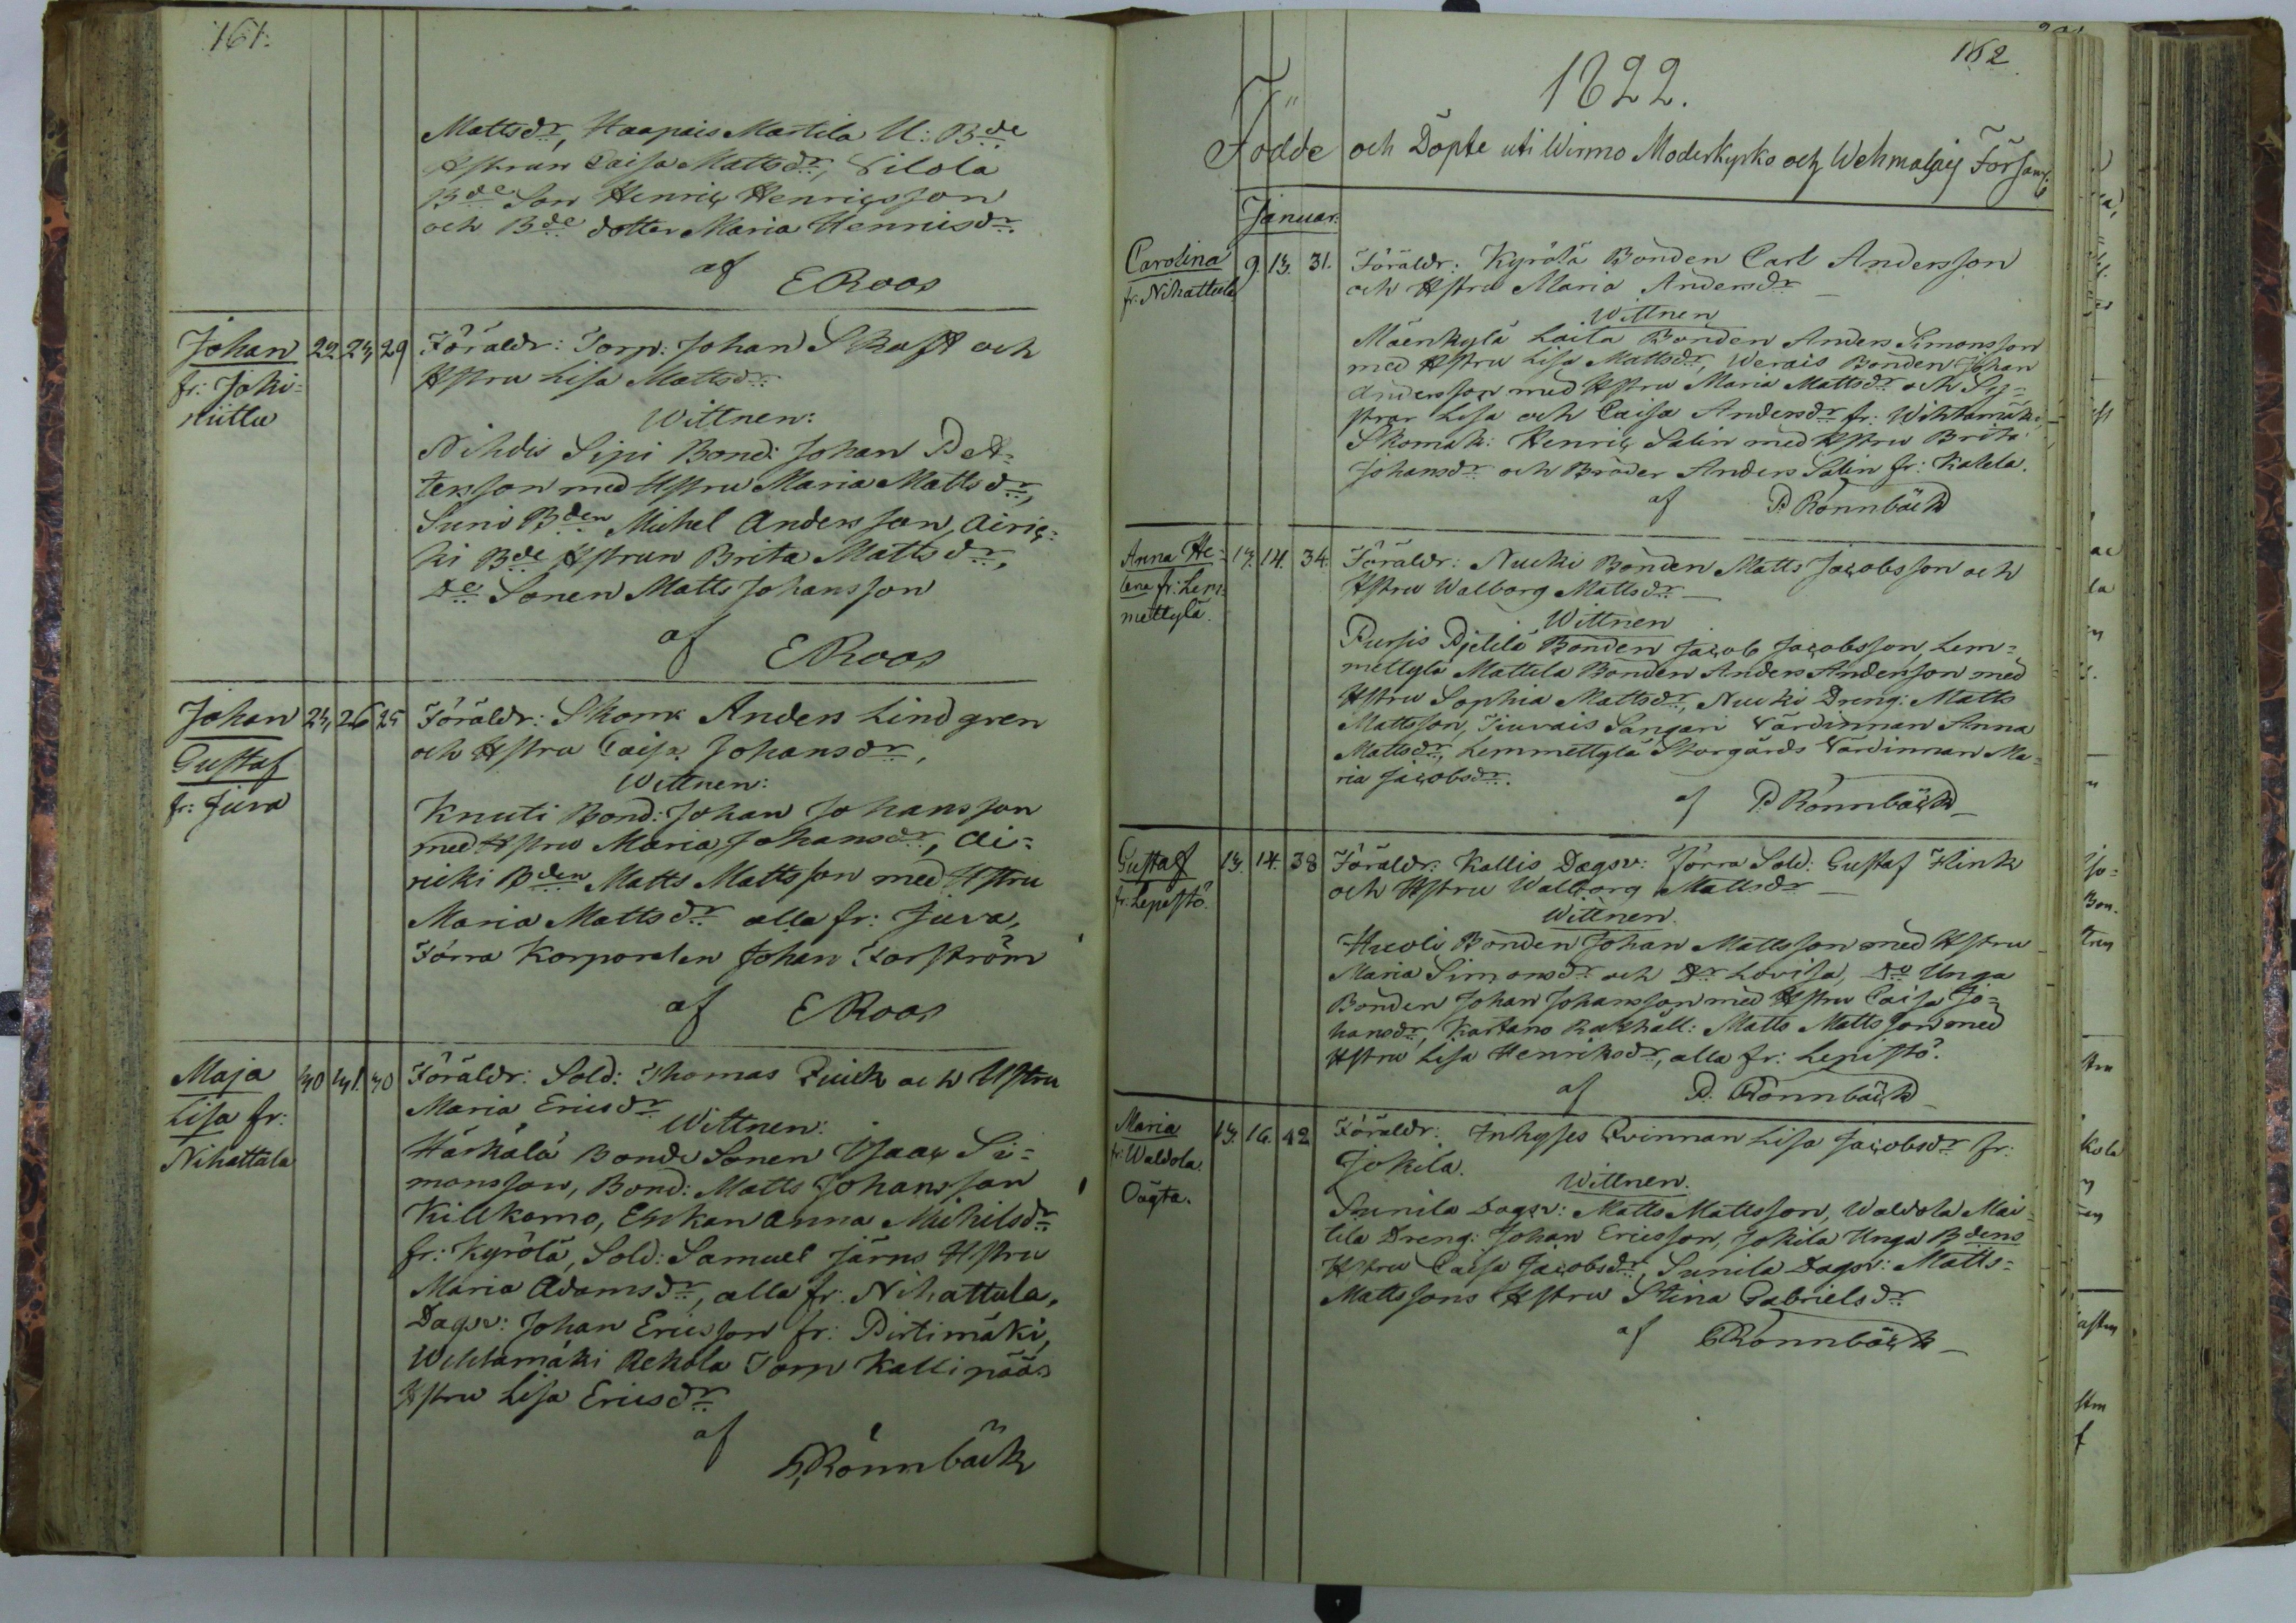 161.
Mattsdr, Haapais Martila U: Bde
Hstrun Caisa Mattsdr, Pilola
Bde Son Henric Henricsson
och Bde dotter Maria Henricsdr.
af E Roos
Johan 22 23 29 Föräldr: Torp: Johan Skaft och
fr: Joki- Hstru Lisa Mattsdr
niittu
Wittnen:
Nihdis Sipi Bond: Johan Pet-
tersson med Hstru Maria Mattsdr,
Suni Bden Michel Andersson, Airic-
ki Bde Hstrun Brita Mattsdr,
De Sonen Matts Johansson
af E Roos
Johan 23 26 25 Föräldr: Skom: Anders Lindgren
Gustaf och Hstru Caisa Johansdr,
fr: Juva
Wittnen:
Knuti Bond: Johan Johansson
med Hstru Maria Johansdr, Ai-
ricki Bden Matts Mattsson med Hstru
Maria Mattsdr alla fr: Juva,
Förra Korporalen Johan Forström
af E Roos
Maja 30 31. 30 Föräldr: Sold: Thomas och Hstru
Lisa fr: Maria Ericsdr
Nihattula
Wittnen:
Härkälä Bonde Sonen Isaac Si-
monsson, Bond: Matts Johansson
Killkomo, Enkan Anna Michelsdr
fr: Kyrölä, Sold: Samuel Järns Hstru
Maria Adamsdr, alla fr: Nihattula,
Dagsv: Johan Ericsson fr: Pirtimäki,
Wehtamäki Rekola Torp Kallipää:s
Hstru Lisa Ericsdr
af P. Rönnbäck
162
1822.
Födde och Döpte uti Wirmo Moderkyrko och Församl:
Januar:
Carolina 9. 13. 31. Föräldr: Kyrölä Bonden Carl Andersson
fr: Nihattula och Hstru Maria Andersdr
Wittnen
Mäenkylä Laila Bonden Anders Simonsson
med Hstru Lisa Mattsdr, Werais Bonden Johan
Andersson med Hstru Maria Mattsdr och Sys-
trar Lisa och Caisa Andersdr fr: Wihtamäki,
Skomak: Henric Salin med Hstru Brita
Johansdr och Broder Anders Salin fr: Kalela.
af P. Rönnbäck
Anna He- 13. 14. 34. Föräldr: Nucki Bonden Matts Jacobsson och
lena fr: Lem- Hstru Walborg Mattsdr
mettylä.
Wittnen
Pursis Pjelilä Bonden Jacob Jacobsson, Lem-
mettylä Mattila Bonden Anders Andersson med
Hstru Sophia Mattsdr, Nucki Dreng: Matts
Mattsson, Jiuvais Sangari Värdinnan Anna
Mattsdr, Lemmettylä Skorgårds Värdinnan Ma-
ria Jacobsdr.
af P. Rönnbäck
Gustaf 13. 14. 38 Föräldr: Kallis Dagsv: Förra Sold: Gustaf Flink
fr: Lepistö. och Hstru Walborg Mattsdr
Wittnen.
Huoli Bonden Johan Mattsson med Hstru
Maria Simonsdr och Dr Lovisa, Do Unga
Bonden Johan Johansson med Hstru Caisa Jo-
hansdr, Kartano Matts Mattsson med
Hstru Lisa Henriksdr, alla fr: Lepistö.
af P. Rönnbäck
Maria 13. 16. 42 Föräldr: Inhyses Qvinnan Lisa Jacobsdr fr:
fr: Waldola. Jokila.
Oägta.
Wittnen.
Sunila Dagsv: Matts Mattsson, Waldola Mai-
tila Dreng: Johan Ericsson, Jokila Unga Bdens
Hstru Caisa Jacobsdr, Sunila Dagsv: Matts
Mattssons Hstru Stina Gabrielsdr
af P. Rönnbäck